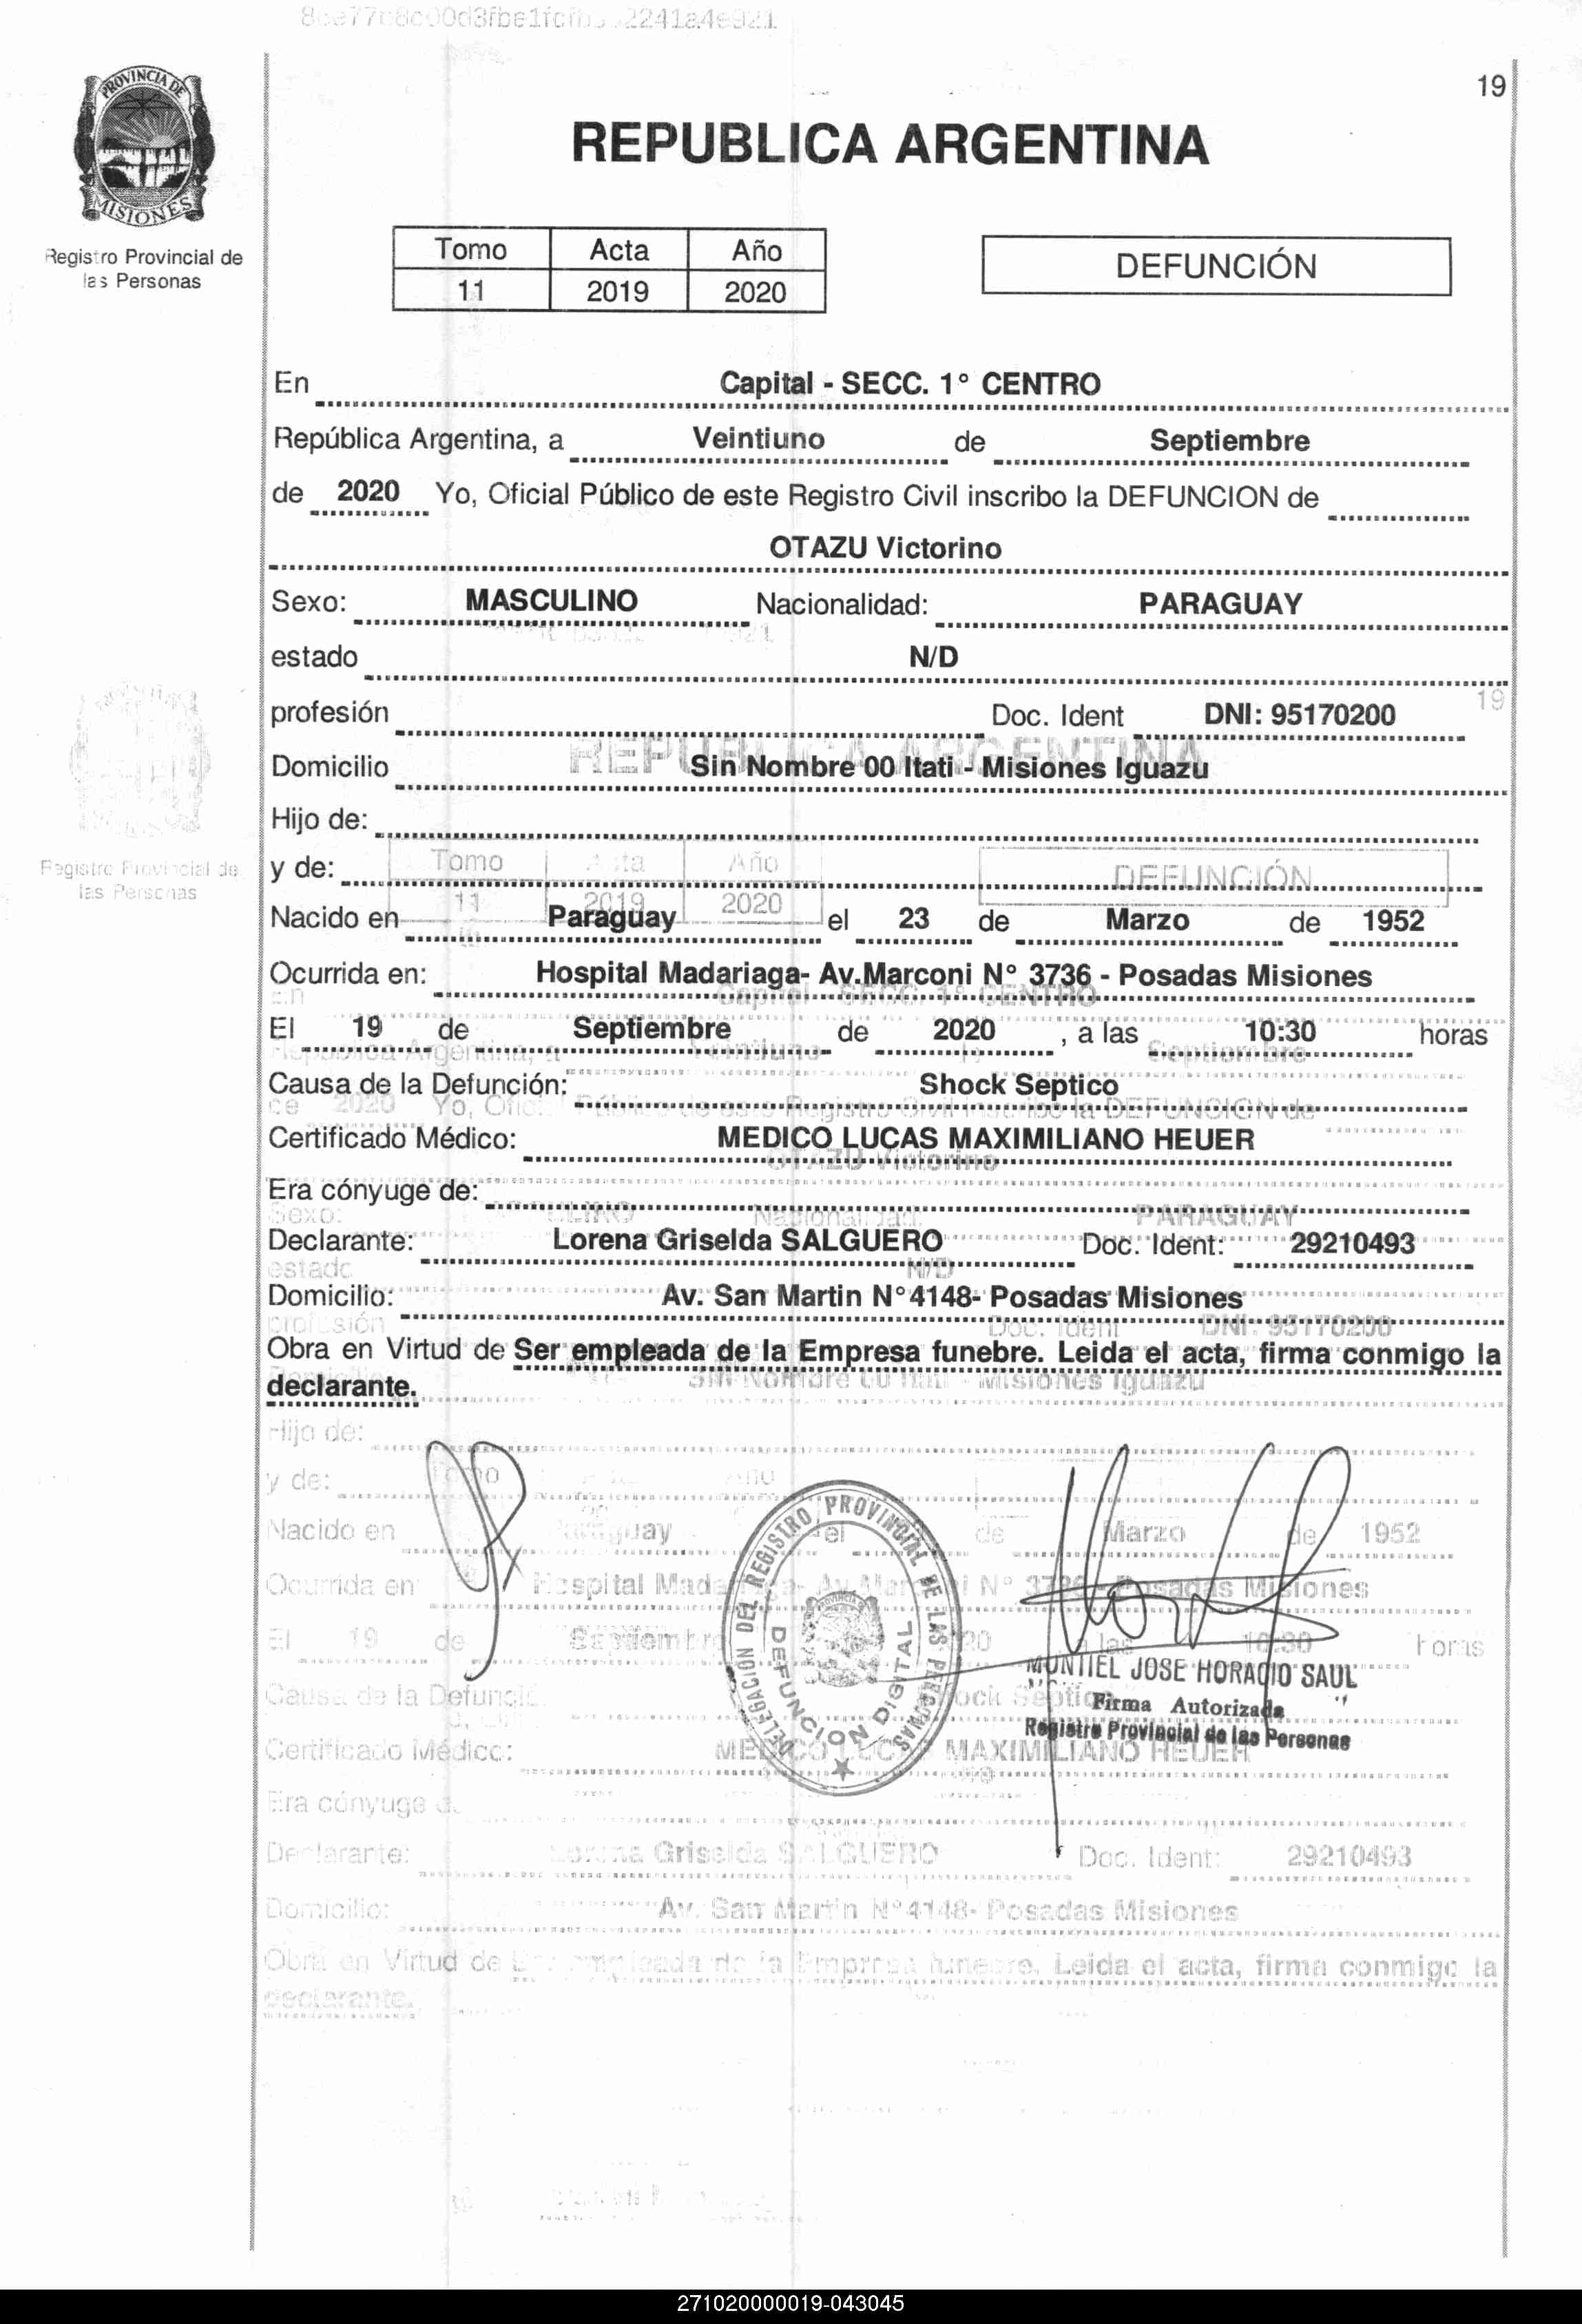 19
PROVINCIA DE
MISIONES
Registro Provincial de
las Personas
REPUBLICA ARGENTINA
Tomo Acta Año
11 2019 2020
DEFUNCIÓN
En Capital - SECC. 1° CENTRO
República Argentina, a Veintiuno de Septiembre
de 2020 Yo, Oficial Público de este Registro Civil inscribo la DEFUNCION de
OTAZU Victorino
Sexo: MASCULINO Nacionalidad: PARAGUAY
estado N/D
profesión Doc. Ident DNI: 95170200
Domicilio Sin Nombre 00 Itati - Misiones Iguazu
Hijo de:
y de:
Nacido en Paraguay el 23 de Marzo de 1952
Ocurrida en: Hospital Madariaga- Av.Marconi N° 3736 - Posadas Misiones
El 19 de Septiembre de 2020 , a las 10:30 horas
Causa de la Defunción: Shock Septico
Certificado Médico: MEDICO LUCAS MAXIMILIANO HEUER
Era cónyuge de:
Declarante: Lorena Griselda SALGUERO Doc. Ident: 29210493
Domicilio: Av. San Martin N°4148- Posadas Misiones
Obra en Virtud de Ser empleada de la Empresa funebre. Leida el acta, firma conmigo la
declarante.
DELEGACION DEL REGISTRO PROVINCIAL DE LAS PERSONAS
DEFUNCION DIGITAL
JOSE HORACIO SAUL
Firma Autorizada
Registro Provincial de las Personas
271020000019-043045